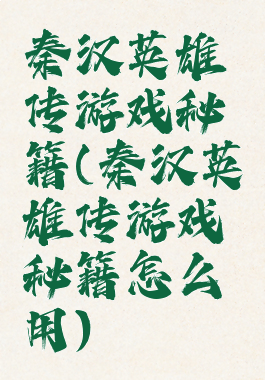 秦汉英雄
传游戏秘
籍(秦汉英
雄传游戏
秘籍怎么
用)